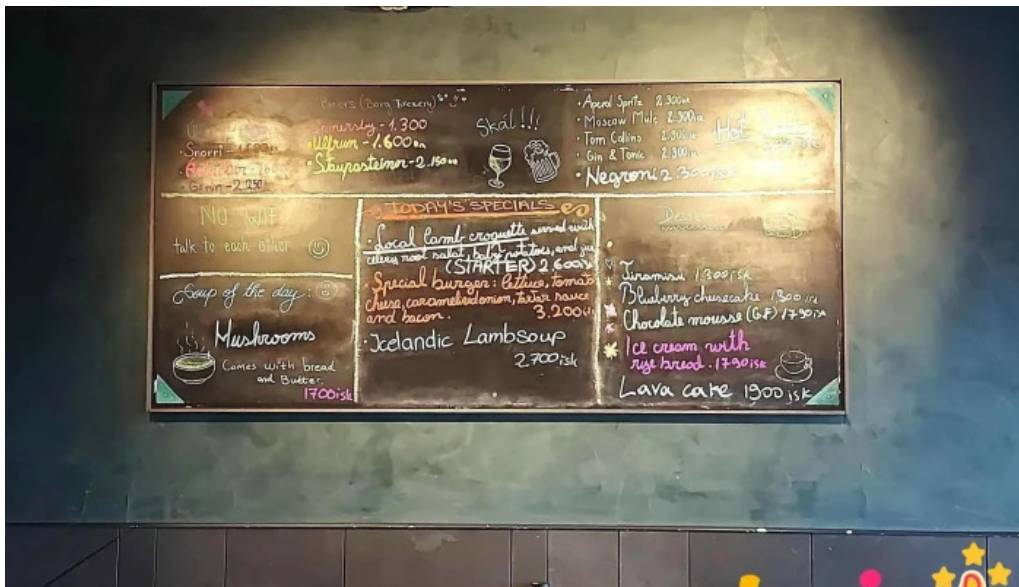 Beers (Borg Brewery)
Snorri
- 1.300
Úlfrun - 1.600
- 2.150
- 2.250
Skál!!!
• Aperol Spritz 2.300
• Moscow Mule 2.300
• Tom Collins 2.300
• Gin & Tonic 2.300
• Negroni 2.300isk
Hot
NO WIFI
talk to each other
Soup of the day:
Mushrooms
Comes with bread
and Butter.
1700isk
TODAY'S SPECIALS
• Local lamb croquette served with
celery root salad, baby potatoes, and
(STARTER) 2.600
Special burger: lettuce, tomato
cheese, caramelied onion, tartar sauce
and bacon. 3.200
• Icelandic Lambsoup
2.700isk
Tiramisu 1.300isk
Blueberry cheesecake 1300isk
Chocolate mousse (G.F) 1790isk
Ice cream with
rye bread. 1790isk
Lava cake 1900isk